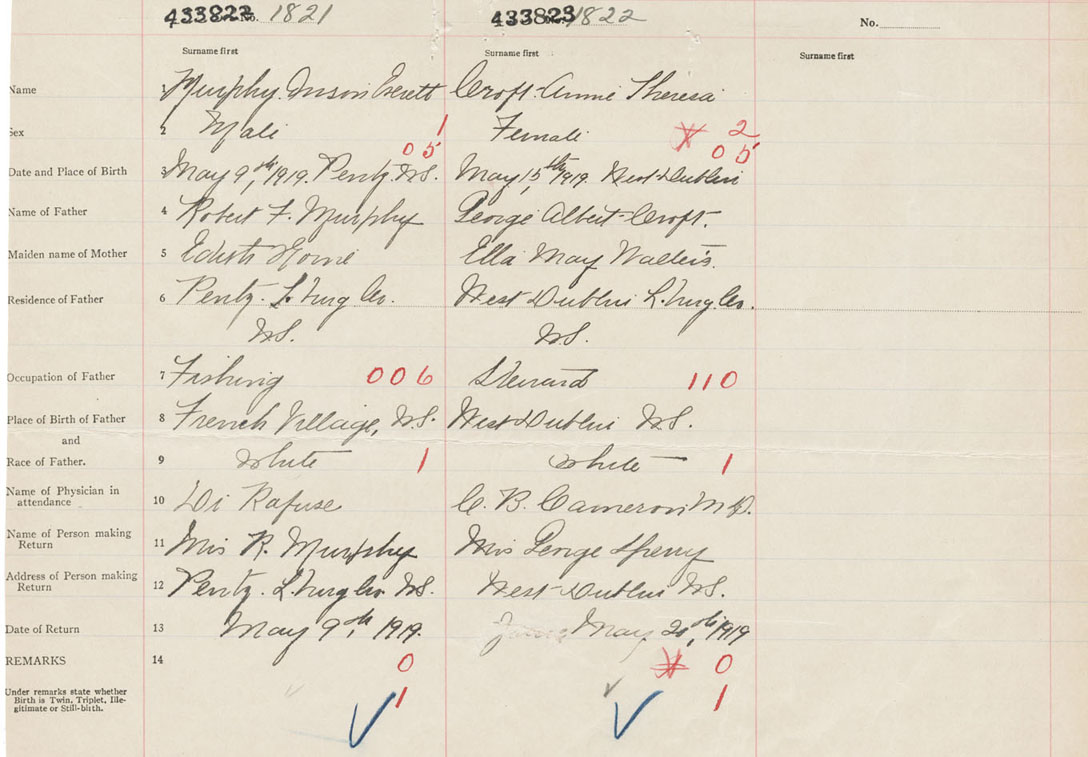 433822 No. 1821 433823 1822 No.
Surname first Surname first Surname first
Name 1 Murphy. Inson Everett Croft. Annie Theresa
Sex 2 Male 1 Female 2
05 05
Date and Place of Birth 3 May 9th, 1919. Pentz. N.S. May 15th, 1919. West Dublin
Name of Father 4 Robert F. Murphy George Albert Croft.
Maiden name of Mother 5 Edith Ella May Walters.
Residence of Father 6 Pentz. L'burg Co. West Dublin L'burg Co.
N.S. N.S.
Occupation of Father 7 Fishing 006 Steward 110
Place of Birth of Father 8 French Village, N.S. West Dublin N.S.
and
Race of Father. 9 White 1 White 1
Name of Physician in
attendance 10 Dr Rafuse C. B. Cameron M.D.
Name of Person making
Return 11 Mrs R. Murphy Mrs George Sperry
Address of Person making
Return 12 Pentz. L'burg Co. N.S. West Dublin N.S.
Date of Return 13 May 9th, 1919. May 1919
REMARKS 14 0 0
Under remarks state whether
Birth is Twin, Triplet, Ille-
gitimate or Still-birth. 1 1